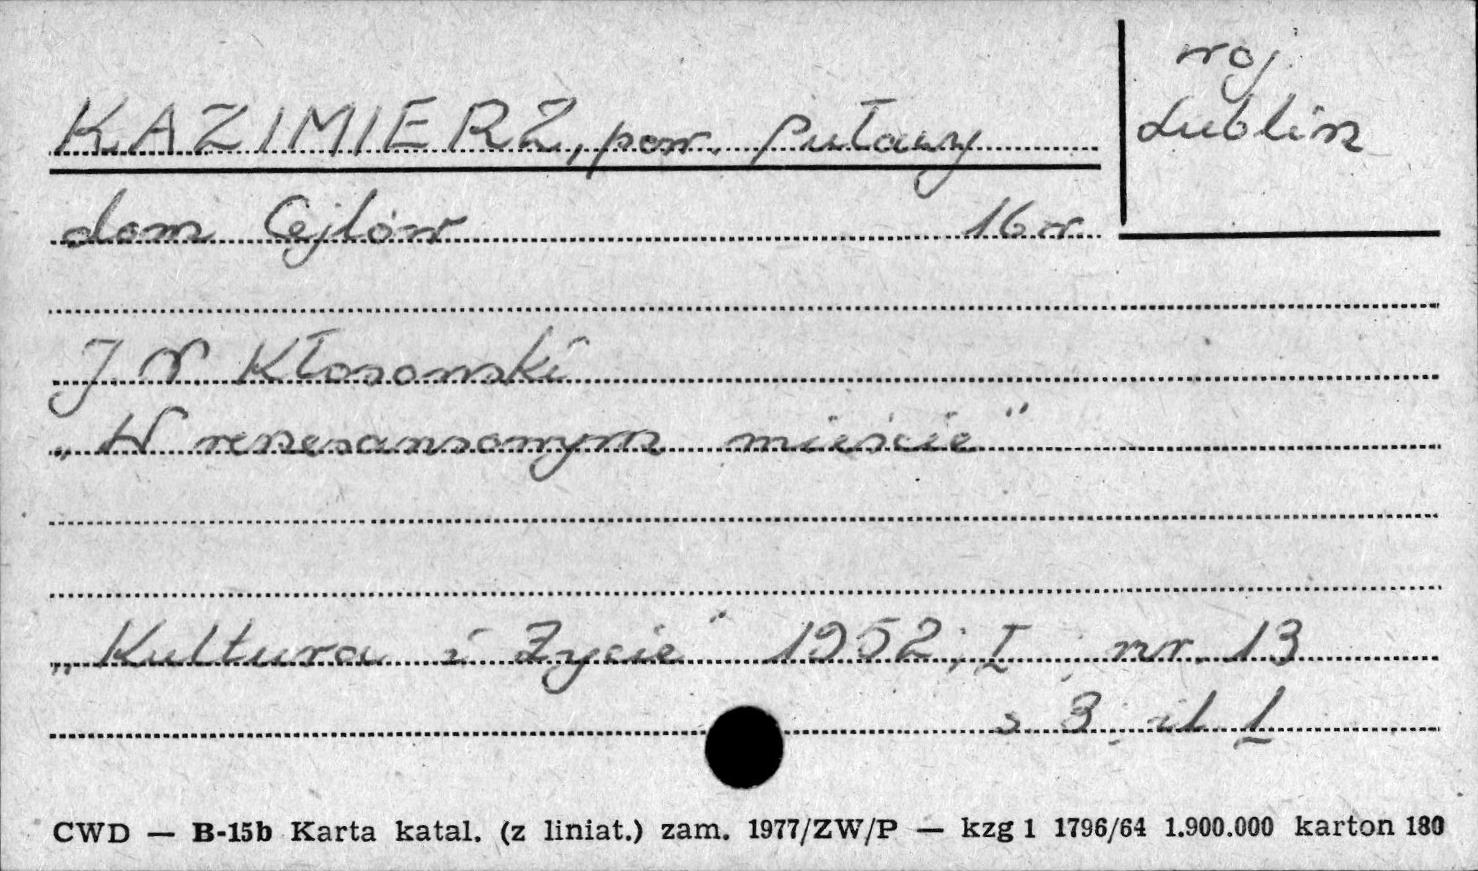 woj.
Lublin
KAZIMIERZ, pow. Puławy
dom Cejlów 16 w.
J. W Kłosowski
„W renesansowym mieście"
„Kultura i Życie" 1952; I nr. 13
s. 3; il. 1
CWD — B-15b Karta katal. (z liniat.) zam. 1977/ZW/P — kzg 1 1796/64 1.900.000 karton 180